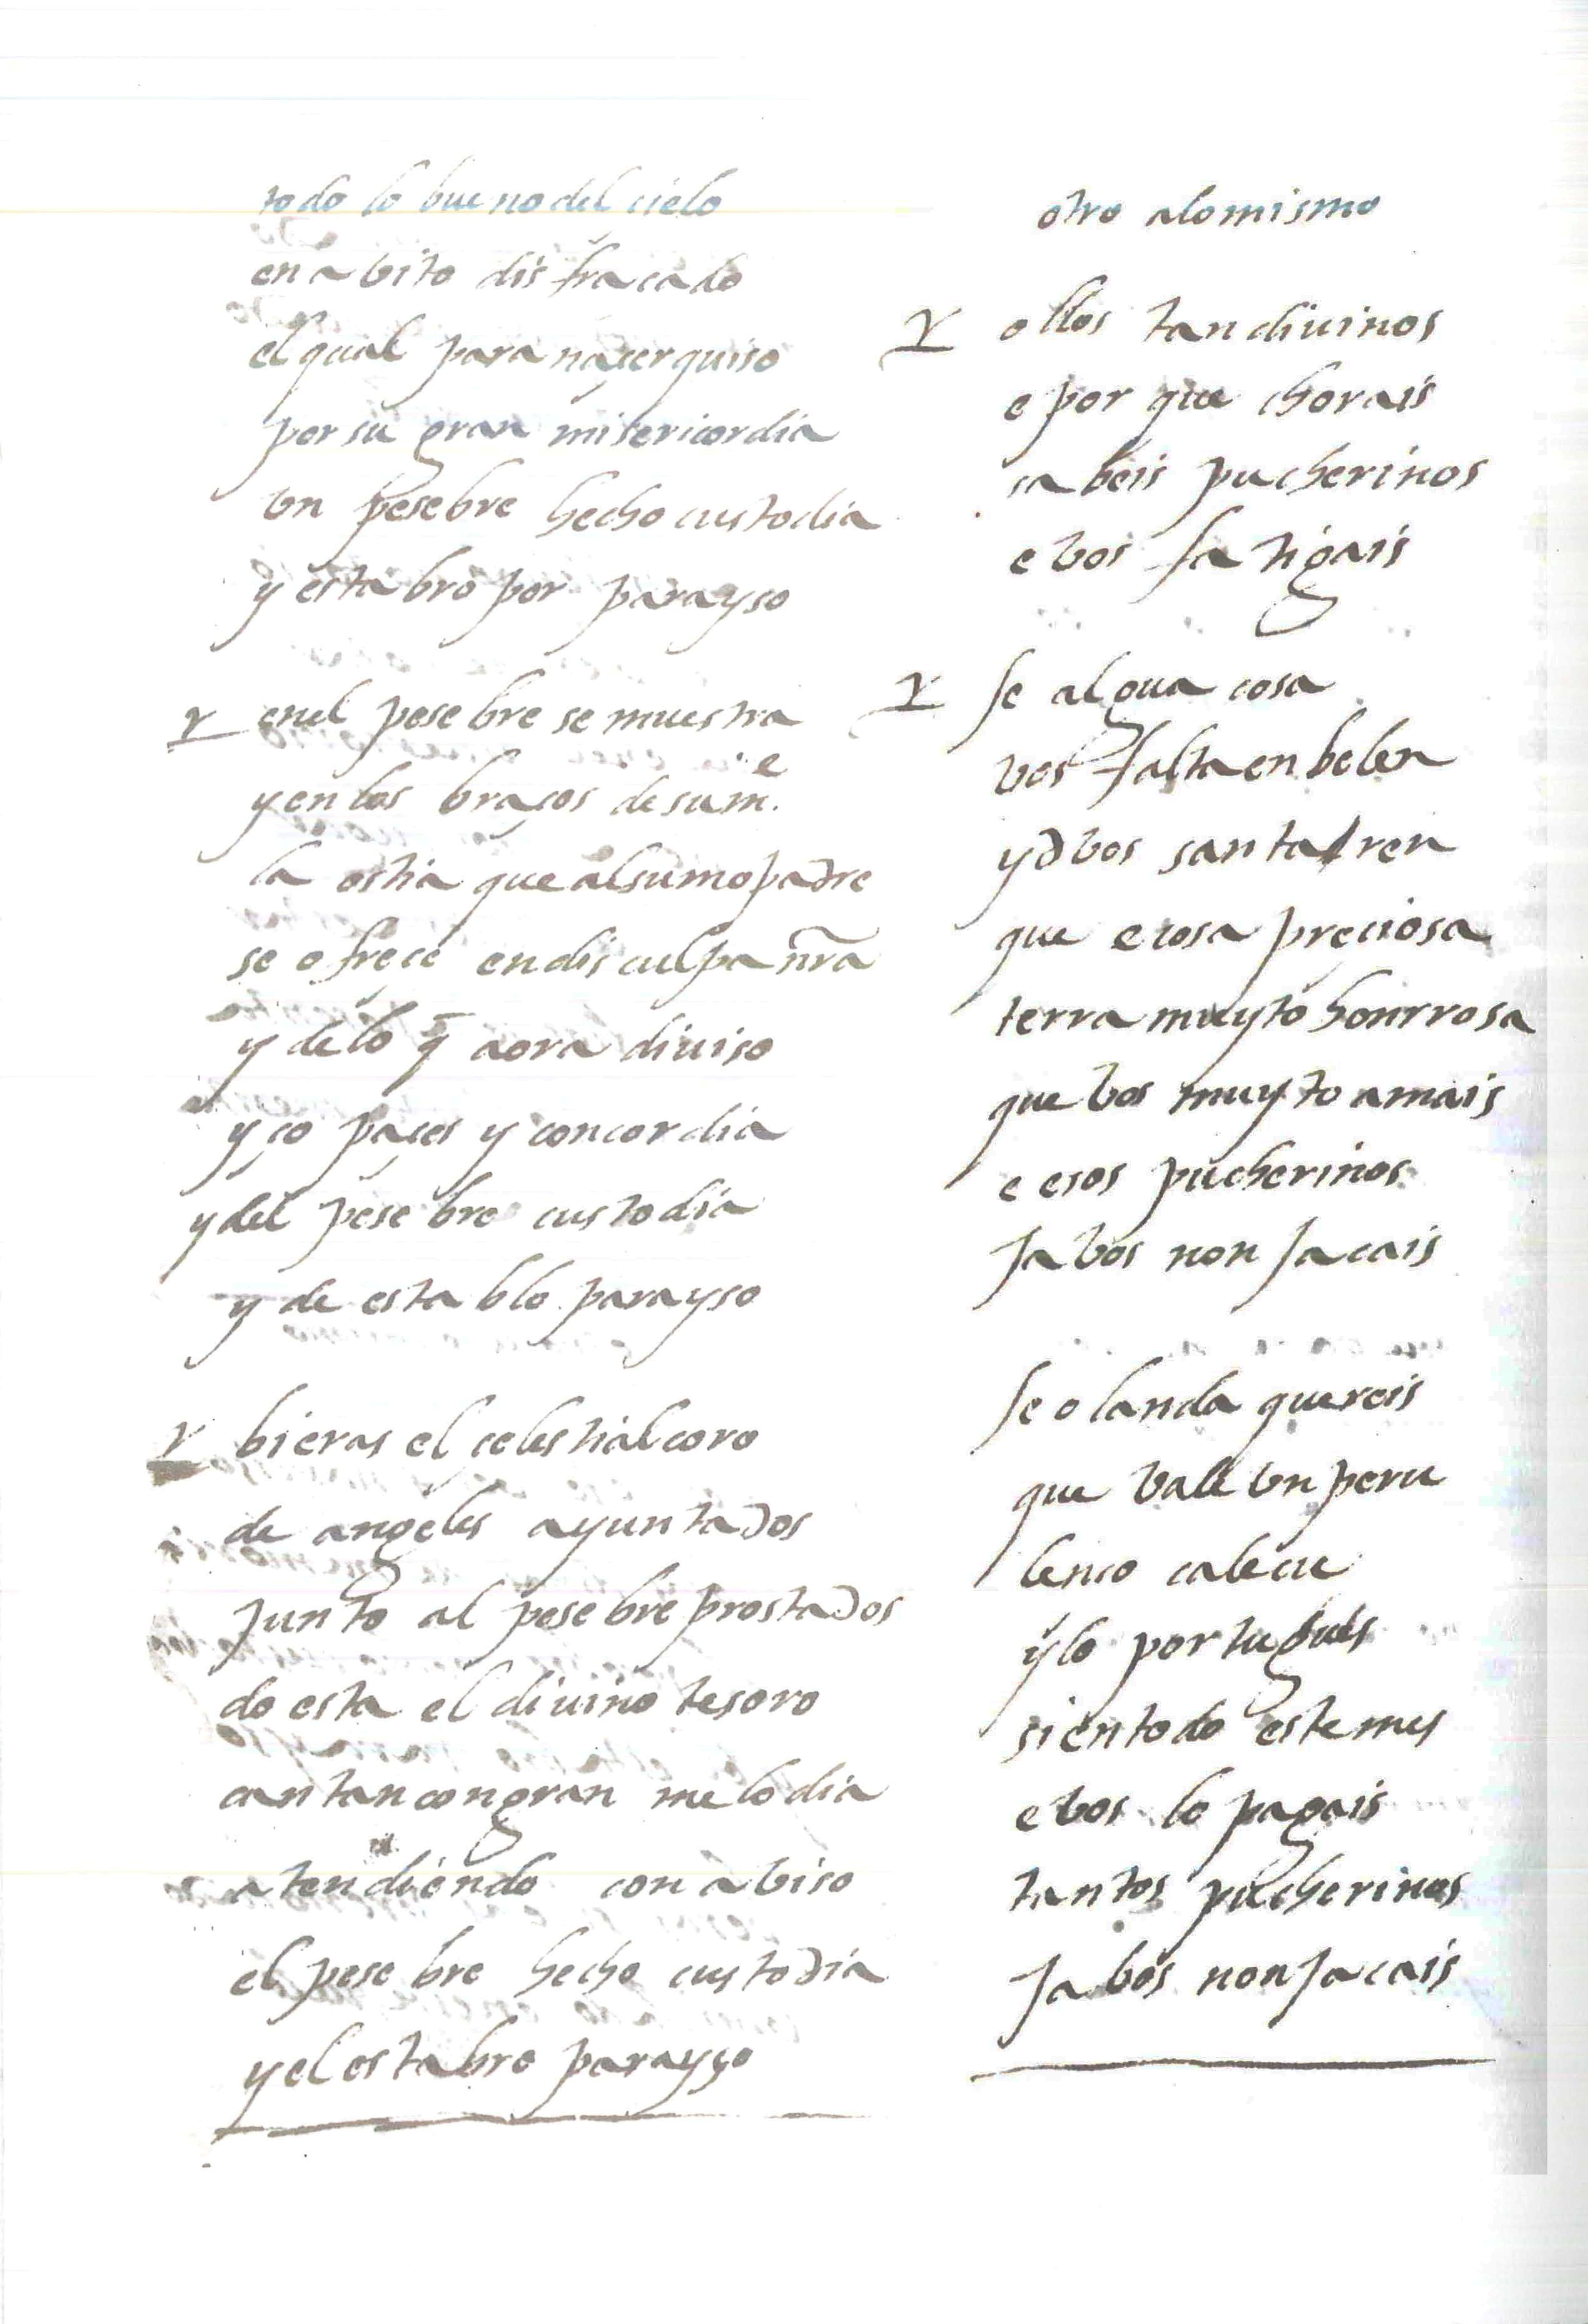 todo lo bueno del cielo
en abito disfracado
el qual para naçer quiso
por su gran misericordia
vn pesebre hecho custodia
y estabro por parayso
en el pesebre se muestra
y en los braços de su me.
la ostia que al sumo padre
se ofreçe en disculpa nr̃a
y de lo q̄ aora diuiso
y ço paçes y concordia
y del pesebre custodia
y de establo parayso
bieras el çelestial coro
de angeles ayuntados
junto al pesebre prostados
do esta el diuino tesoro
cantan con gran melodia
atendiendo con abiso
el pesebre hecho custodia
y el estabro parayso
otro a lo mismo
ollos tan diuinos
e por que chorais
sabeis pucherinos
e vos fatigais
se algua cosa
vos falta en belen
yd vos santaren
que e cosa preçiosa
terra muyto honrrosa
que vos muyto amais
e esos pucherinos
ja vos non façais
se olanda quereis
que vale vn peru
lenço calecu
y lo portugues
sientodo este mes
e vos lo pagais
tantos pucherinos
ja vos non façais